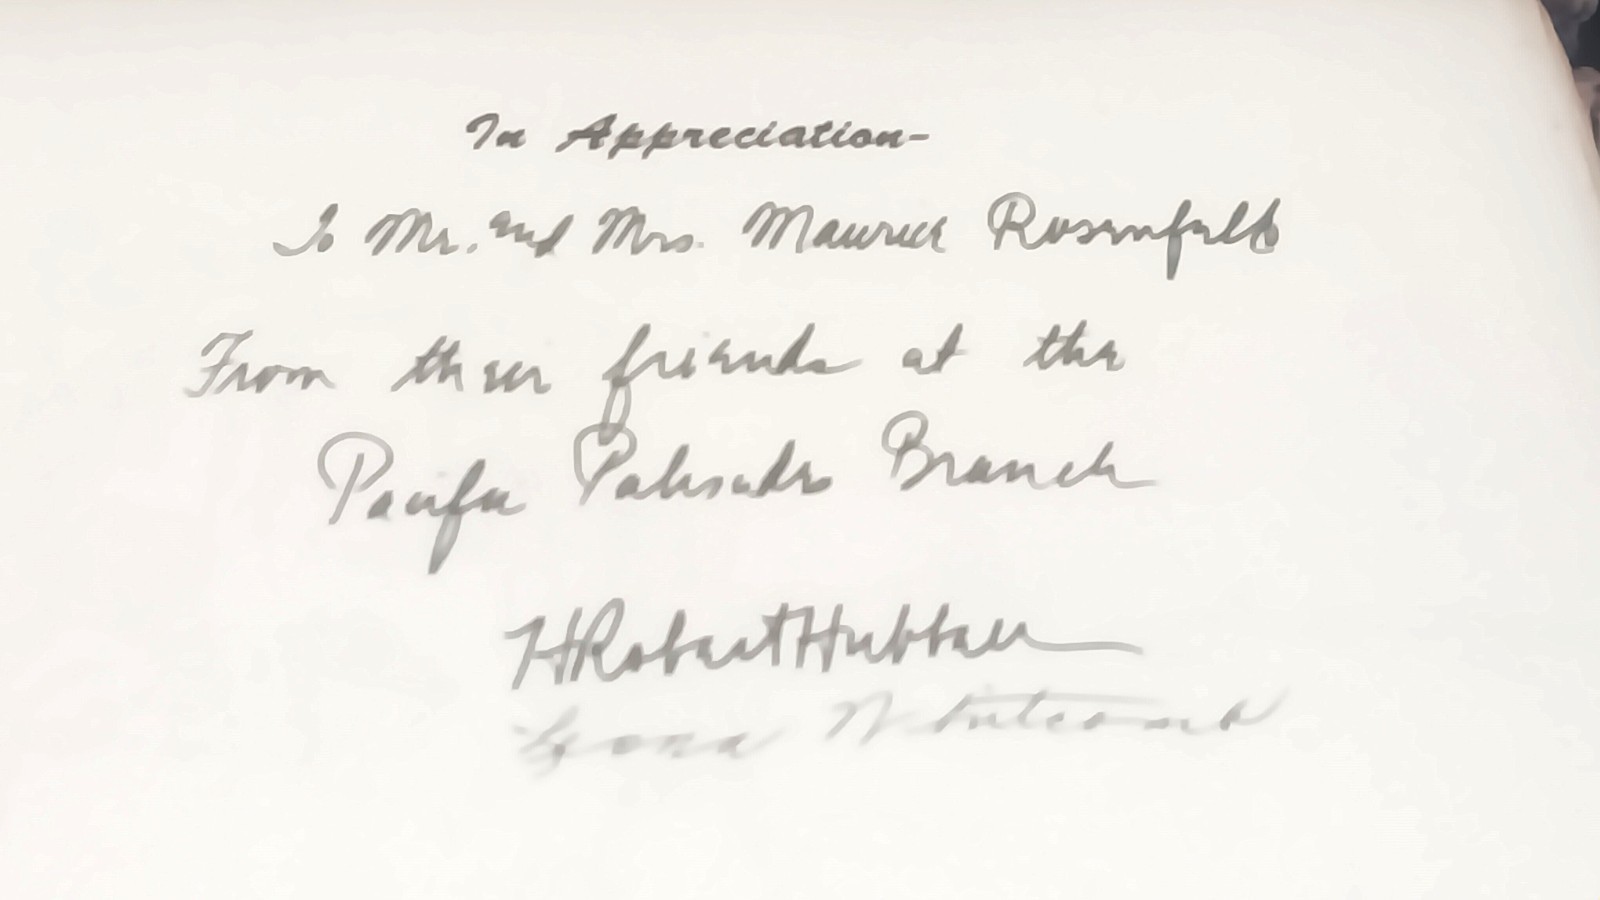 In Appreciation-
To Mr. and Mrs. Maurice Rosenfeld
From their friends at the
Pacific Palisades Branch
H Robert Hubbard
Whitcomb